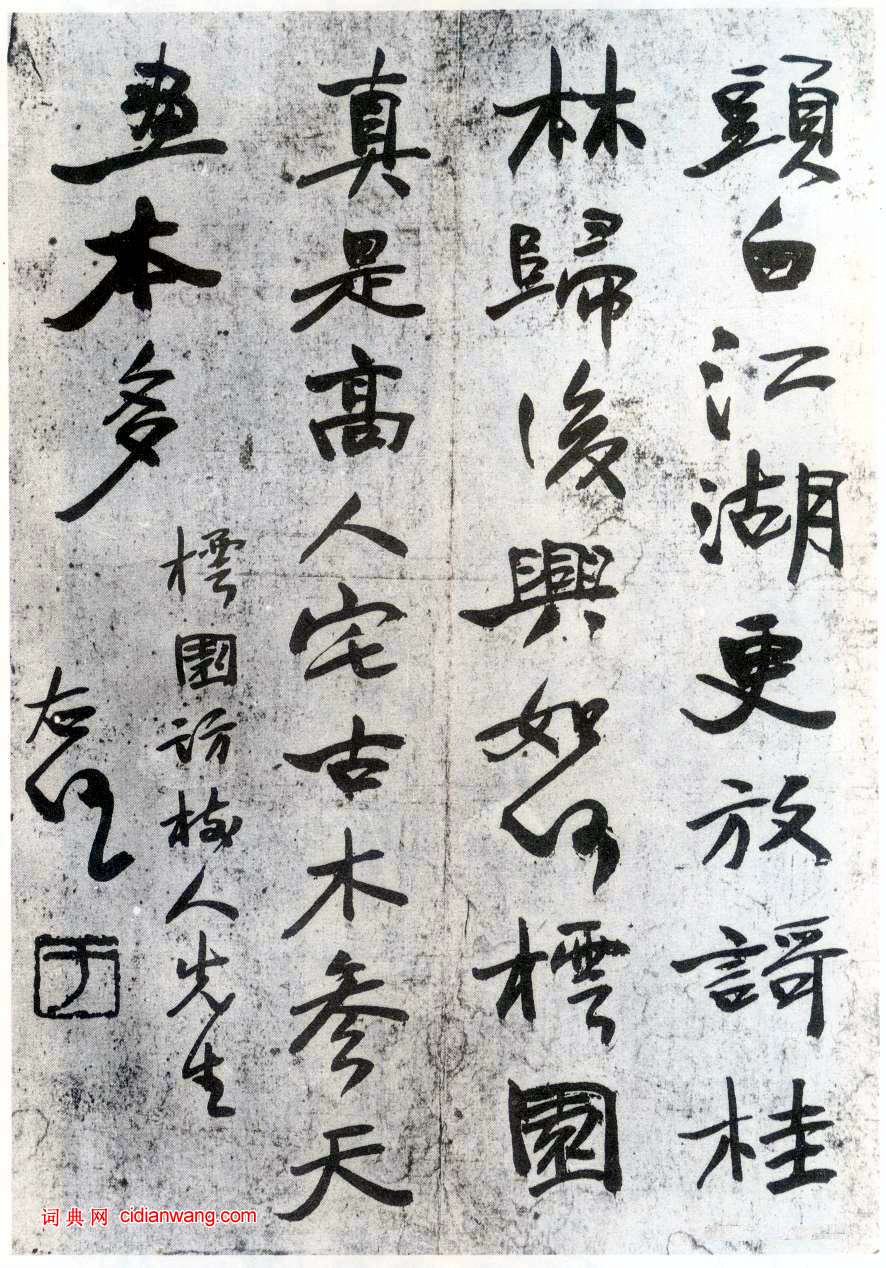 頭白江湖更放謌桂
林歸後興如何橒園
真是高人宅古木參天
畫本多
橒園訪人先生
右任
词典网 cidianwang.com